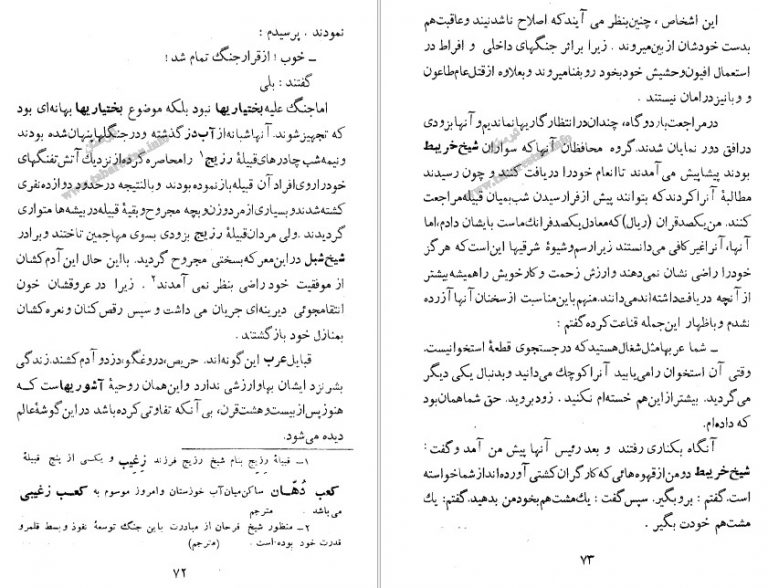 نمودند . پرسیدم :
ـ خوب ! ازقرارجنگ تمام شد !
گفتند : بلی
اماجنگ علیه بختیاریها نبود بلکه موضوع بختیاریها بهانه‌ای بود
که تجهیزشوند. آنهاشبانه ازآب دزگذشته ودرجنگلهاپنهان‌شده بودند
ونیمه‌شب چادرهای‌قبیلهٔ رزیج۱ رامحاصره کرده‌ازنزدیك آتش تفنگهای
خودراروی افرادآن قبیله بازنموده‌بودند وبالنتیجه درحدود دوازده‌نفری
کشته‌شدند وبسیاری ازمردوزن وبچه مجروح وبقیهٔ قبیله‌دربیشه‌ها متواری
گردیدند. ولی مردان قبیلهٔ رزیج بزودی بسوی مهاجمین تاختند وبرادر
شیخ‌شبل دراین‌معرکه بسختی مجروح گردید. بااین حال این آدم‌کشان
از موفقیت خود راضی بنظر نمی آمدند۲ . زیرا در عروقشان خون
انتقامجوئی دیرینه‌ای جریان می داشت و سپس رقص‌کنان و نعره‌کشان
بمنازل خود بازگشتند .
قبایل عرب این گونه‌اند. حریص، دروغگو، دزد و آدم‌کشند. زندگی
بشرنزد ایشان بهاوارزشی ندارد واین‌همان روحیهٔ آشوریهاست که
هنوزپس‌ازبیست وهشت‌قرن، بی‌آنکه تفاوتی کرده‌باشد دراین‌گوشهٔ‌عالم
دیده می‌شود.
۱ـ قبیلهٔ رزیج بنام شیخ رزیج فرزند زغیب و یکی از پنج قبیلهٔ
کعب دُهّان ساکن‌میان‌آب خوزستان وامروز موسوم به کعب زغیبی
می‌باشد . مترجم
۲ـ منظور شیخ فرحان از مبادرت با این جنگ توسعهٔ نفوذ وبسط قلمرو
قدرت خود بوده‌است . (مترجم)
۷۲
این اشخاص ، چنین‌بنظر می آیندکه اصلاح ناشدنیند وعاقبت‌هم
بدست خودشان ازبین‌میروند . زیرا براثر جنگهای داخلی و افراط در
استعمال افیون‌وحشیش خودبخود روبفنامیروند وبعلاوه ازقتل‌عام‌طاعون
و وبا نیزدرامان نیستند .
درمراجعت باردوگاه، چندان درانتظارگاریهانماندیم وآنها بزودی
درافق دور نمایان شدند. گروه محافظان آنهاکه سواران شیخ‌خریبط
بودند پیشاپیش می آمدند تاانعام خودرا دریافت کنند و چون رسیدند
مطالبهٔ آنراکردندکه بتوانند پیش ازفرارسیدن شب‌بمیان قبیله‌مراجعت
کنند. من‌یکصدقران (ریال) که‌معادل‌یکصدفرانك‌ماست بایشان دادم، اما
آنها، آنراغیرکافی می‌دانستند زیرارسم وشیوهٔ شرقیها این‌است‌که هرگز
خودرا راضی نشان نمی‌دهند وارزش زحمت وکارخویش راهمیشه‌بیشتر
از آنچه دریافت‌داشته‌اندمی‌دانند. منهم‌باین‌مناسبت ازسخنان آنهاآزرده
نشدم و باظهار این‌جمله قناعت‌کرده‌گفتم :
ـ شما عربهامثل‌شغال‌هستیدکه درجستجوی قطعهٔ استخوانیست.
وقتی آن استخوان رامی‌یابید آنراکوچك می‌دانید وبدنبال یکی دیگر
می‌گردید. بیشترازاین‌هم خسته‌ام نکنید . زودبروید. حق شماهمان‌بود
که داده‌ام.
آنگاه بکناری رفتند و بعد رئیس آنها پیش من آمد وگفت :
شیخ‌خریبط دومن‌ازقهوه‌هائی‌که‌کارگران‌کشتی‌آورده‌اندازشماخواسته
است. گفتم : بروبگیر. سپس‌گفت : یك‌مشت‌هم‌بخودمن بدهید. گفتم: یك
مشت‌هم خودت بگیر .
۷۳